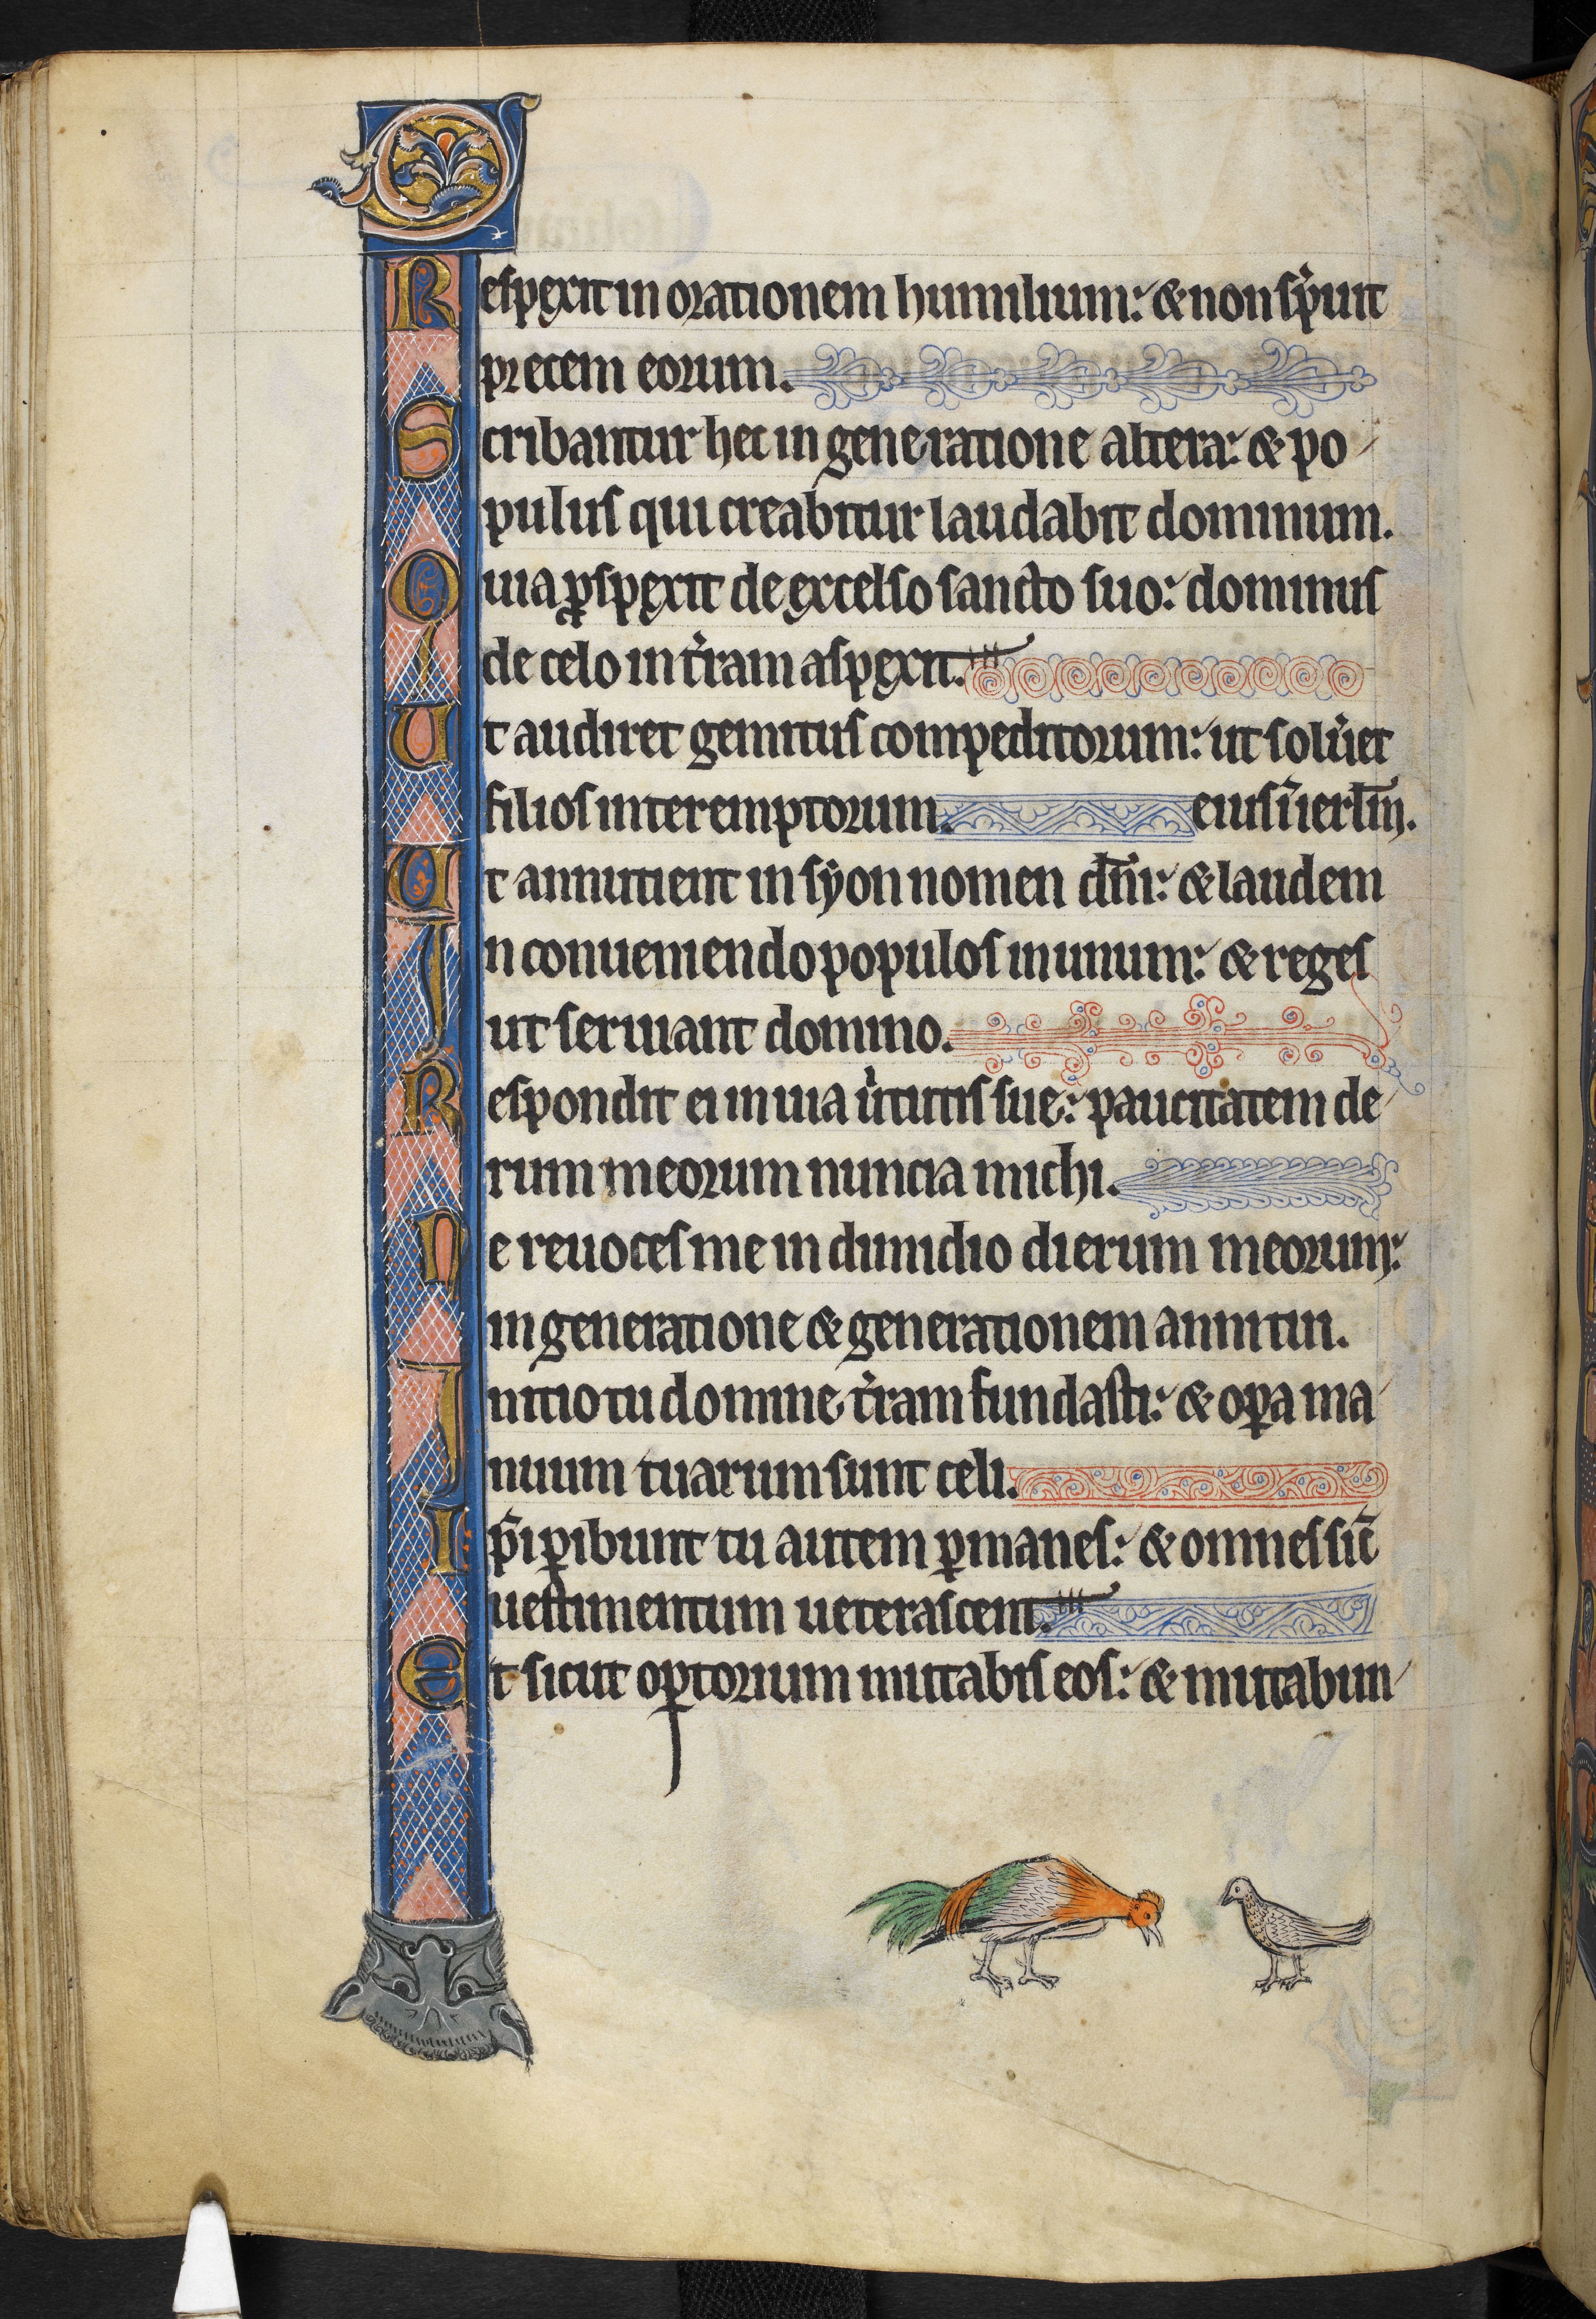 Respexit in orationem humilium: & non sp̾uit
precem eorum.
Scribantur hec in generatione altera: & po
pulus qui creabitur laudabit dominum.
Quia ꝓspexit de excelso sancto suo: dominus
de celo in t̾ram aspexit.
Ut audiret gemitus compeditorum: ut solu̾et
filios interemptorum. eius ī ierl̄m.
Ut annutient in syon nomen dn̄i: & laudem
In conueniendo populos in unum: & reges
ut seruiant domino.
Respondit ei in uia u̾tutis sue: paucitatem de
rum meorum nuncia michi.
Ne reuoces me in dimidio dierum meorum:
in generatione & generationem anni tui.
Initio tu domine t̾ram fundasti: & oꝑa ma
nuum tuarum sunt celi.
Ip̄i ꝑibunt tu autem ꝑmanes: & omnes sic̄
uestimentum ueterascent.
Et sicut oꝑtorium mutabis eos: & mutabun